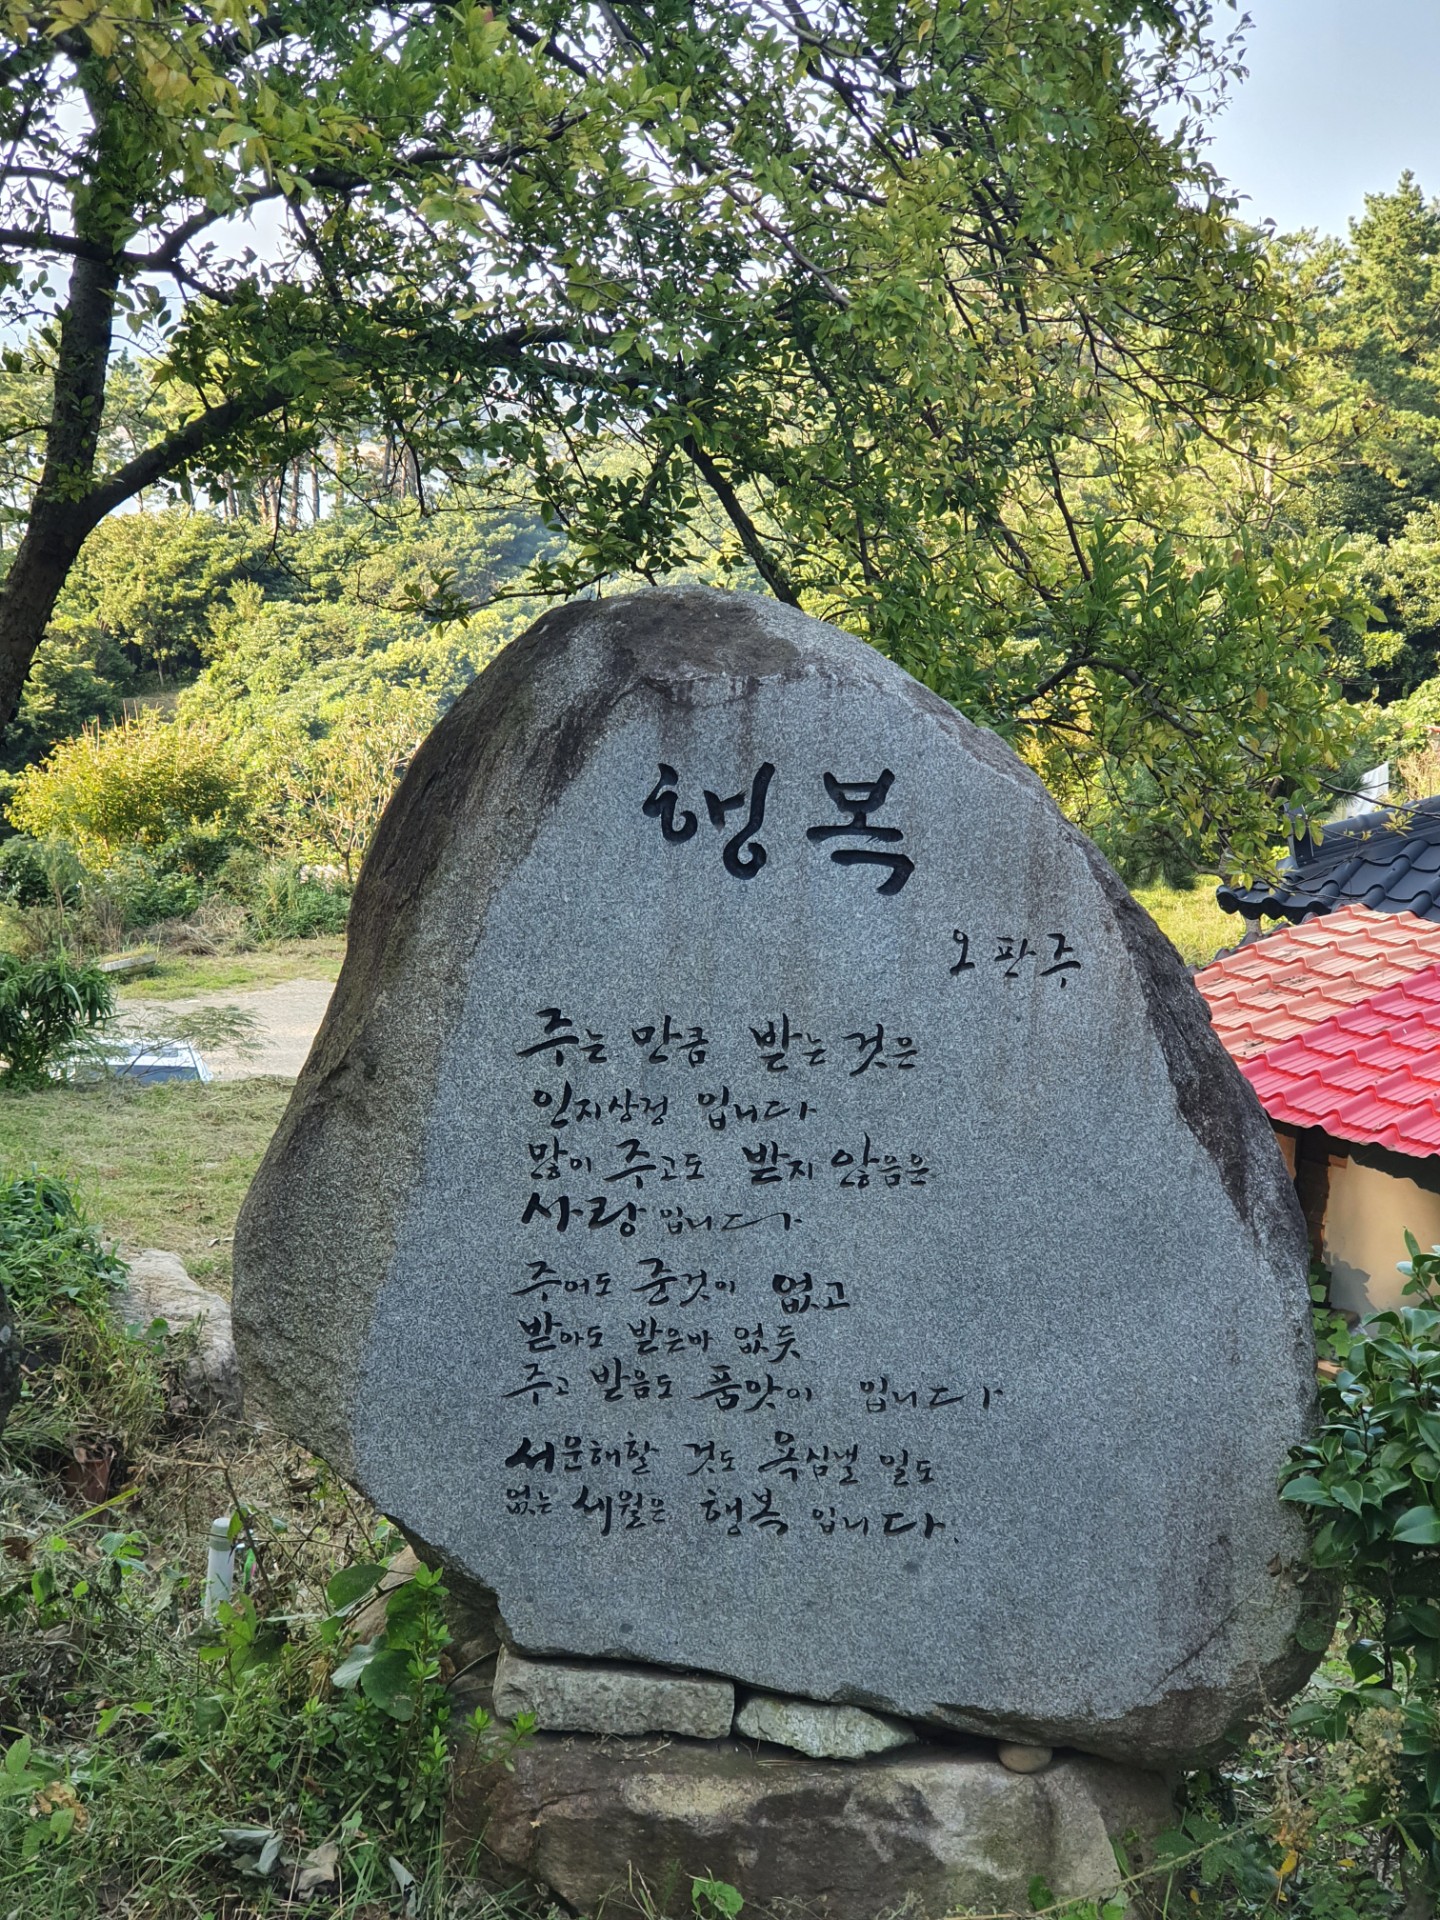 행복
오판주
주는 만큼 받는 것은
인지상정 입니다
많이 주고도 받지 않음은
사랑입니다
주어도 준것이 없고
받아도 받은바 없듯
주고 받음도 품앗이 입니다
서운해할 것도 욕심낼 일도
없는 세월은 행복 입니다.